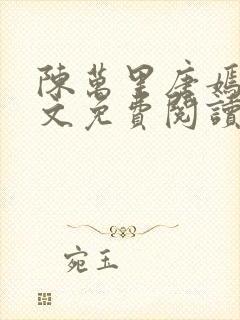 陳萬里唐嫣
文免費閱讀
宛玉